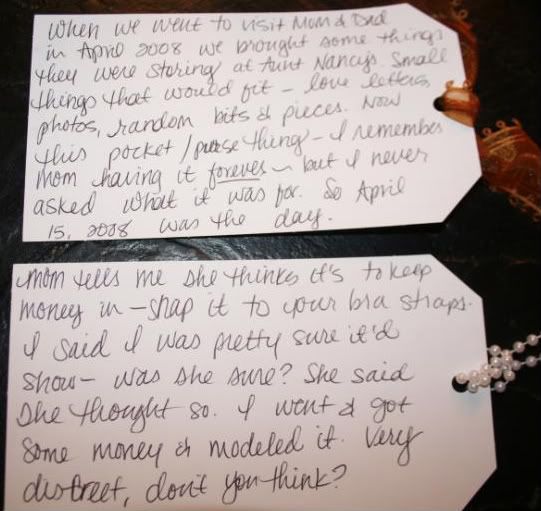 When we went to visit Mom & Dad
in April 2008 we brought some things
they were storing at Aunt Nancy's. Small
things that would fit - love letters,
photos, random bits & pieces. Now
this pocket / purse thing - I remember
Mom having it forever - but I never
asked what it was for. So April
15, 2008 was the day.
Mom tells me she thinks it's to keep
money in - snap it to your bra straps.
I said I was pretty sure it'd
show - was she sure? She said
she thought so. I went & got
some money & modeled it. Very
discreet, don't you think?